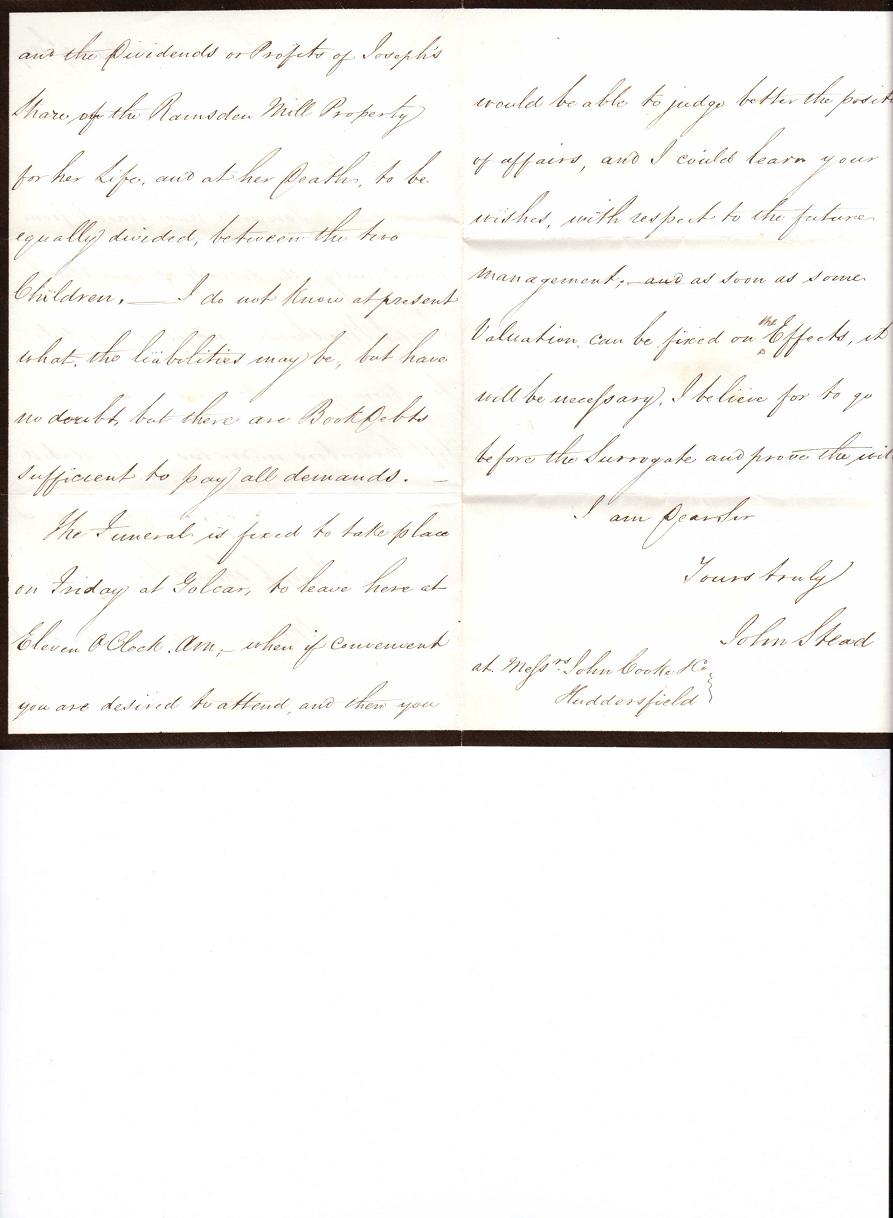 and the Dividends or Profits of Joseph's
Share, of the Ramsden Mill Property
for her Life, and at her Death, to be
equally divided, between the two
Children. — I do not know at present
what, the liabilities may be, but have
no doubt, but there are Book Debts
sufficient to pay all demands. —
The Funeral is fixed to take place
on Friday at Golcar, to leave here at
Eleven O'Clock. Am,- when if convenient
you are desired to attend, and then you
would be able to judge better the posit
of affairs, and I could learn your
wishes, with respect to the future
management;- and as soon as some
Valuation, can be fixed on the Effects, it
will be necessary, I believe for to go
before the Surrogate and prove the wil
I am Dear Sir
Yours truly
John Stead
at Messrs. John Cooke & Co
Huddersfield